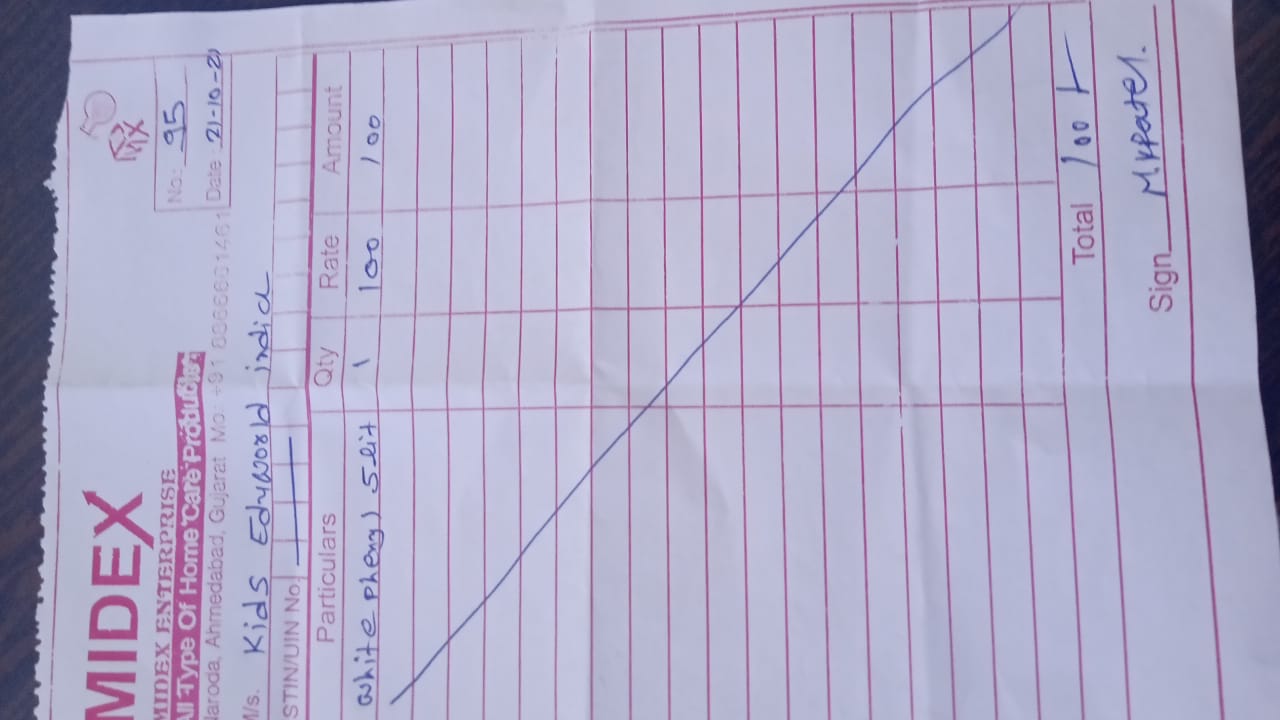 MIDEX
MIDEX ENTERPRISE
All Type Of Home Care Production
Naroda, Ahmedabad, Gujarat Mo: +91
No: 95
Date: 21-10-21
M/s. Kids Eduworld india
STIN/UIN No.
Particulars Qty Rate Amount
White Phenyl 5 lit 1 100 100
Total 100
Sign MKPatel.